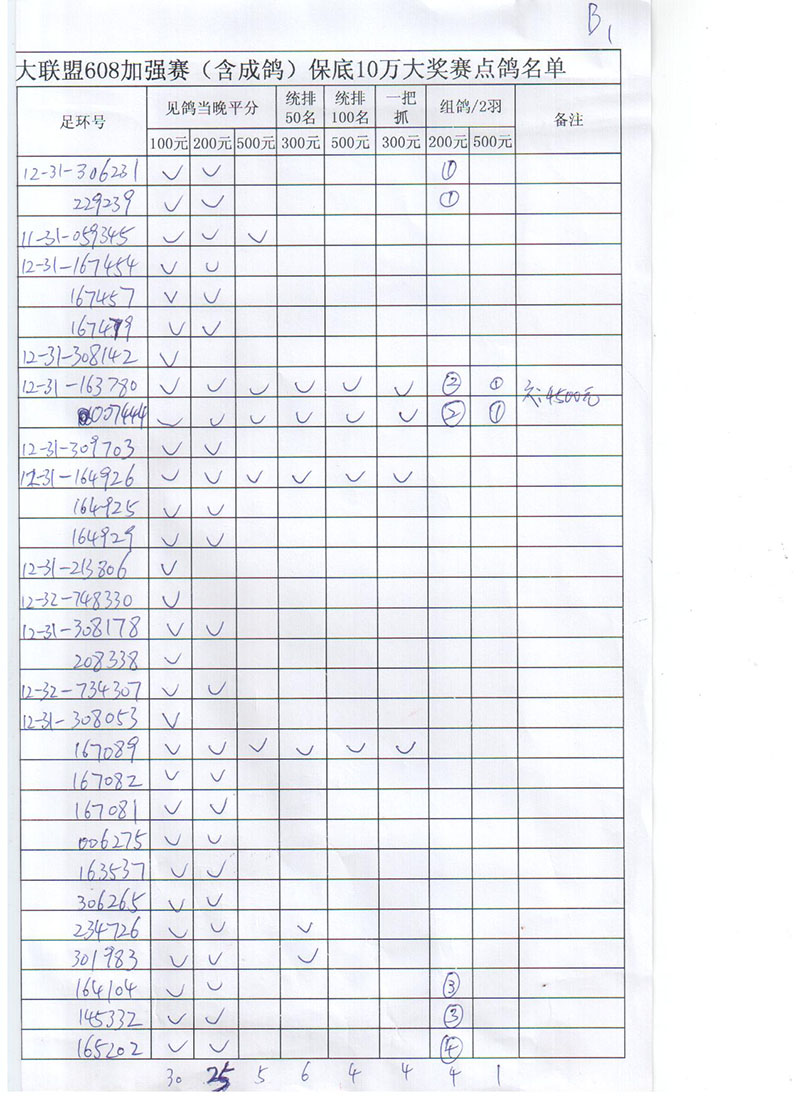 B1
大联盟608加强赛（含成鸽）保底10万大奖赛点鸽名单
足环号 见鸽当晚平分 统排50名 统排100名 一把抓 组鸽/2羽 备注
100元 200元 500元 300元 500元 300元 200元 500元
12-31-306231 ✓ ✓ ①
229239 ✓ ✓ ①
11-31-059345 ✓ ✓ ✓
12-31-167454 ✓ ✓
167457 ✓ ✓
167479 ✓ ✓
12-31-308142 ✓
12-31-163780 ✓ ✓ ✓ ✓ ✓ ✓ ② ①
欠:4500元
007444 ✓ ✓ ✓ ✓ ✓ ✓ ② ①
12-31-309703 ✓ ✓
12-31-164926 ✓ ✓ ✓ ✓ ✓ ✓
164925 ✓ ✓
164929 ✓ ✓
12-31-213806 ✓
12-32-748330 ✓
12-31-308178 ✓ ✓
208338 ✓
12-32-734307 ✓ ✓
12-31-308053 ✓
167089 ✓ ✓ ✓ ✓ ✓ ✓
167082 ✓ ✓
167081 ✓ ✓
006275 ✓ ✓
163537 ✓ ✓
306265 ✓ ✓
234726 ✓ ✓ ✓
301983 ✓ ✓ ✓
164104 ✓ ✓ ③
145332 ✓ ✓ ③
165202 ✓ ✓ ④
30 25 5 6 4 4 4 1